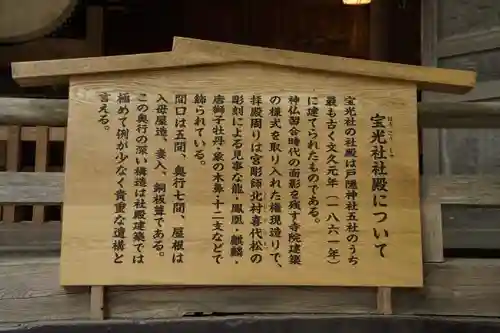 宝光社社殿について
ほうこうしゃ
宝光社の社殿は戸隠神社五社のうち
最も古く文久元年（一八六一年）
に建てられたものである。
神仏習合時代の面影を残す寺院建築
の様式を取り入れた権現造りで、
拝殿周りは宮彫師北村喜代松の
彫刻による見事な龍・鳳凰・麒麟・
唐獅子牡丹・象の木鼻・十二支などで
飾られている。
間口は五間、奥行七間、屋根は
入母屋造、妻入、銅板葺である。
この奥行の深い構造は社殿建築では
極めて例が少なく貴重な遺構と
言える。